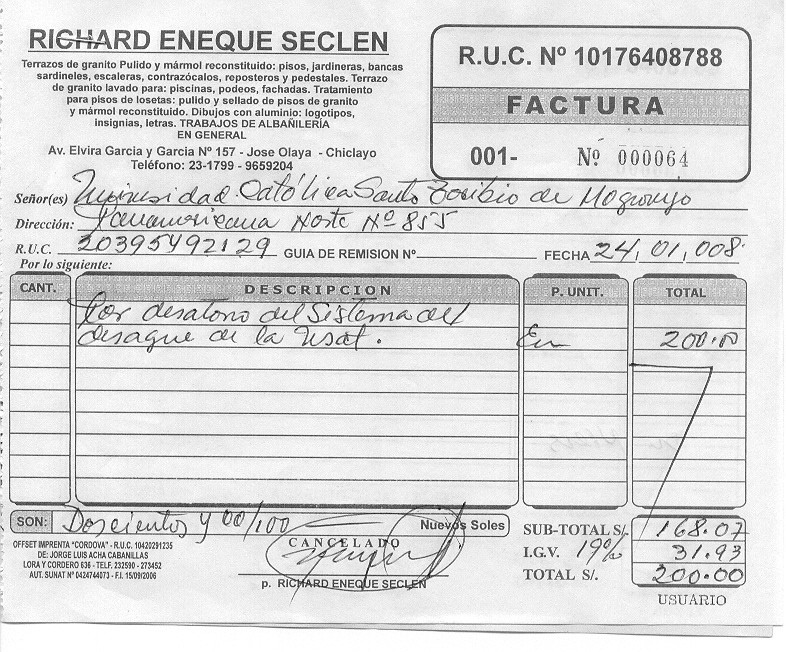 RICHARD ENEQUE SECLEN
Terrazos de granito Pulido y mármol reconstituido: pisos, jardineras, bancas
sardineles, escaleras, contrazócalos, reposteros y pedestales. Terrazo
de granito lavado para: piscinas, podeos, fachadas. Tratamiento
para pisos de losetas: pulido y sellado de pisos de granito
y mármol reconstituido. Dibujos con aluminio: logotipos,
insignias, letras. TRABAJOS DE ALBAÑILERÍA
EN GENERAL
Av. Elvira Garcia y Garcia Nº 157 - Jose Olaya - Chiclayo
Teléfono: 23-1799 - 9659204
R.U.C. Nº 10176408788
FACTURA
001- Nº 000064
Señor(es) Universidad Católica Santo Toribio de Mogrovejo
Dirección: Panamericana Norte Nº 855
R.U.C. 20395492129 GUIA DE REMISION Nº FECHA 24,01,008
Por lo siguiente:
CANT. DESCRIPCION P. UNIT. TOTAL
Por desatoro del Sistema del
desague de la Usat. En 200.00
SON: Doscientos y 00/100 Nuevos Soles
CANCELADO
p. RICHARD ENEQUE SECLEN
OFFSET IMPRENTA "CORDOVA" - R.U.C. 10420291235
DE: JORGE LUIS ACHA CABANILLAS
LORA Y CORDERO 636 - TELF. 232590 - 273452
AUT. SUNAT Nº 0424744073 - F.I. 15/09/2006
SUB-TOTAL S/. 168.07
I.G.V. 19% 31.93
TOTAL S/. 200.00
USUARIO